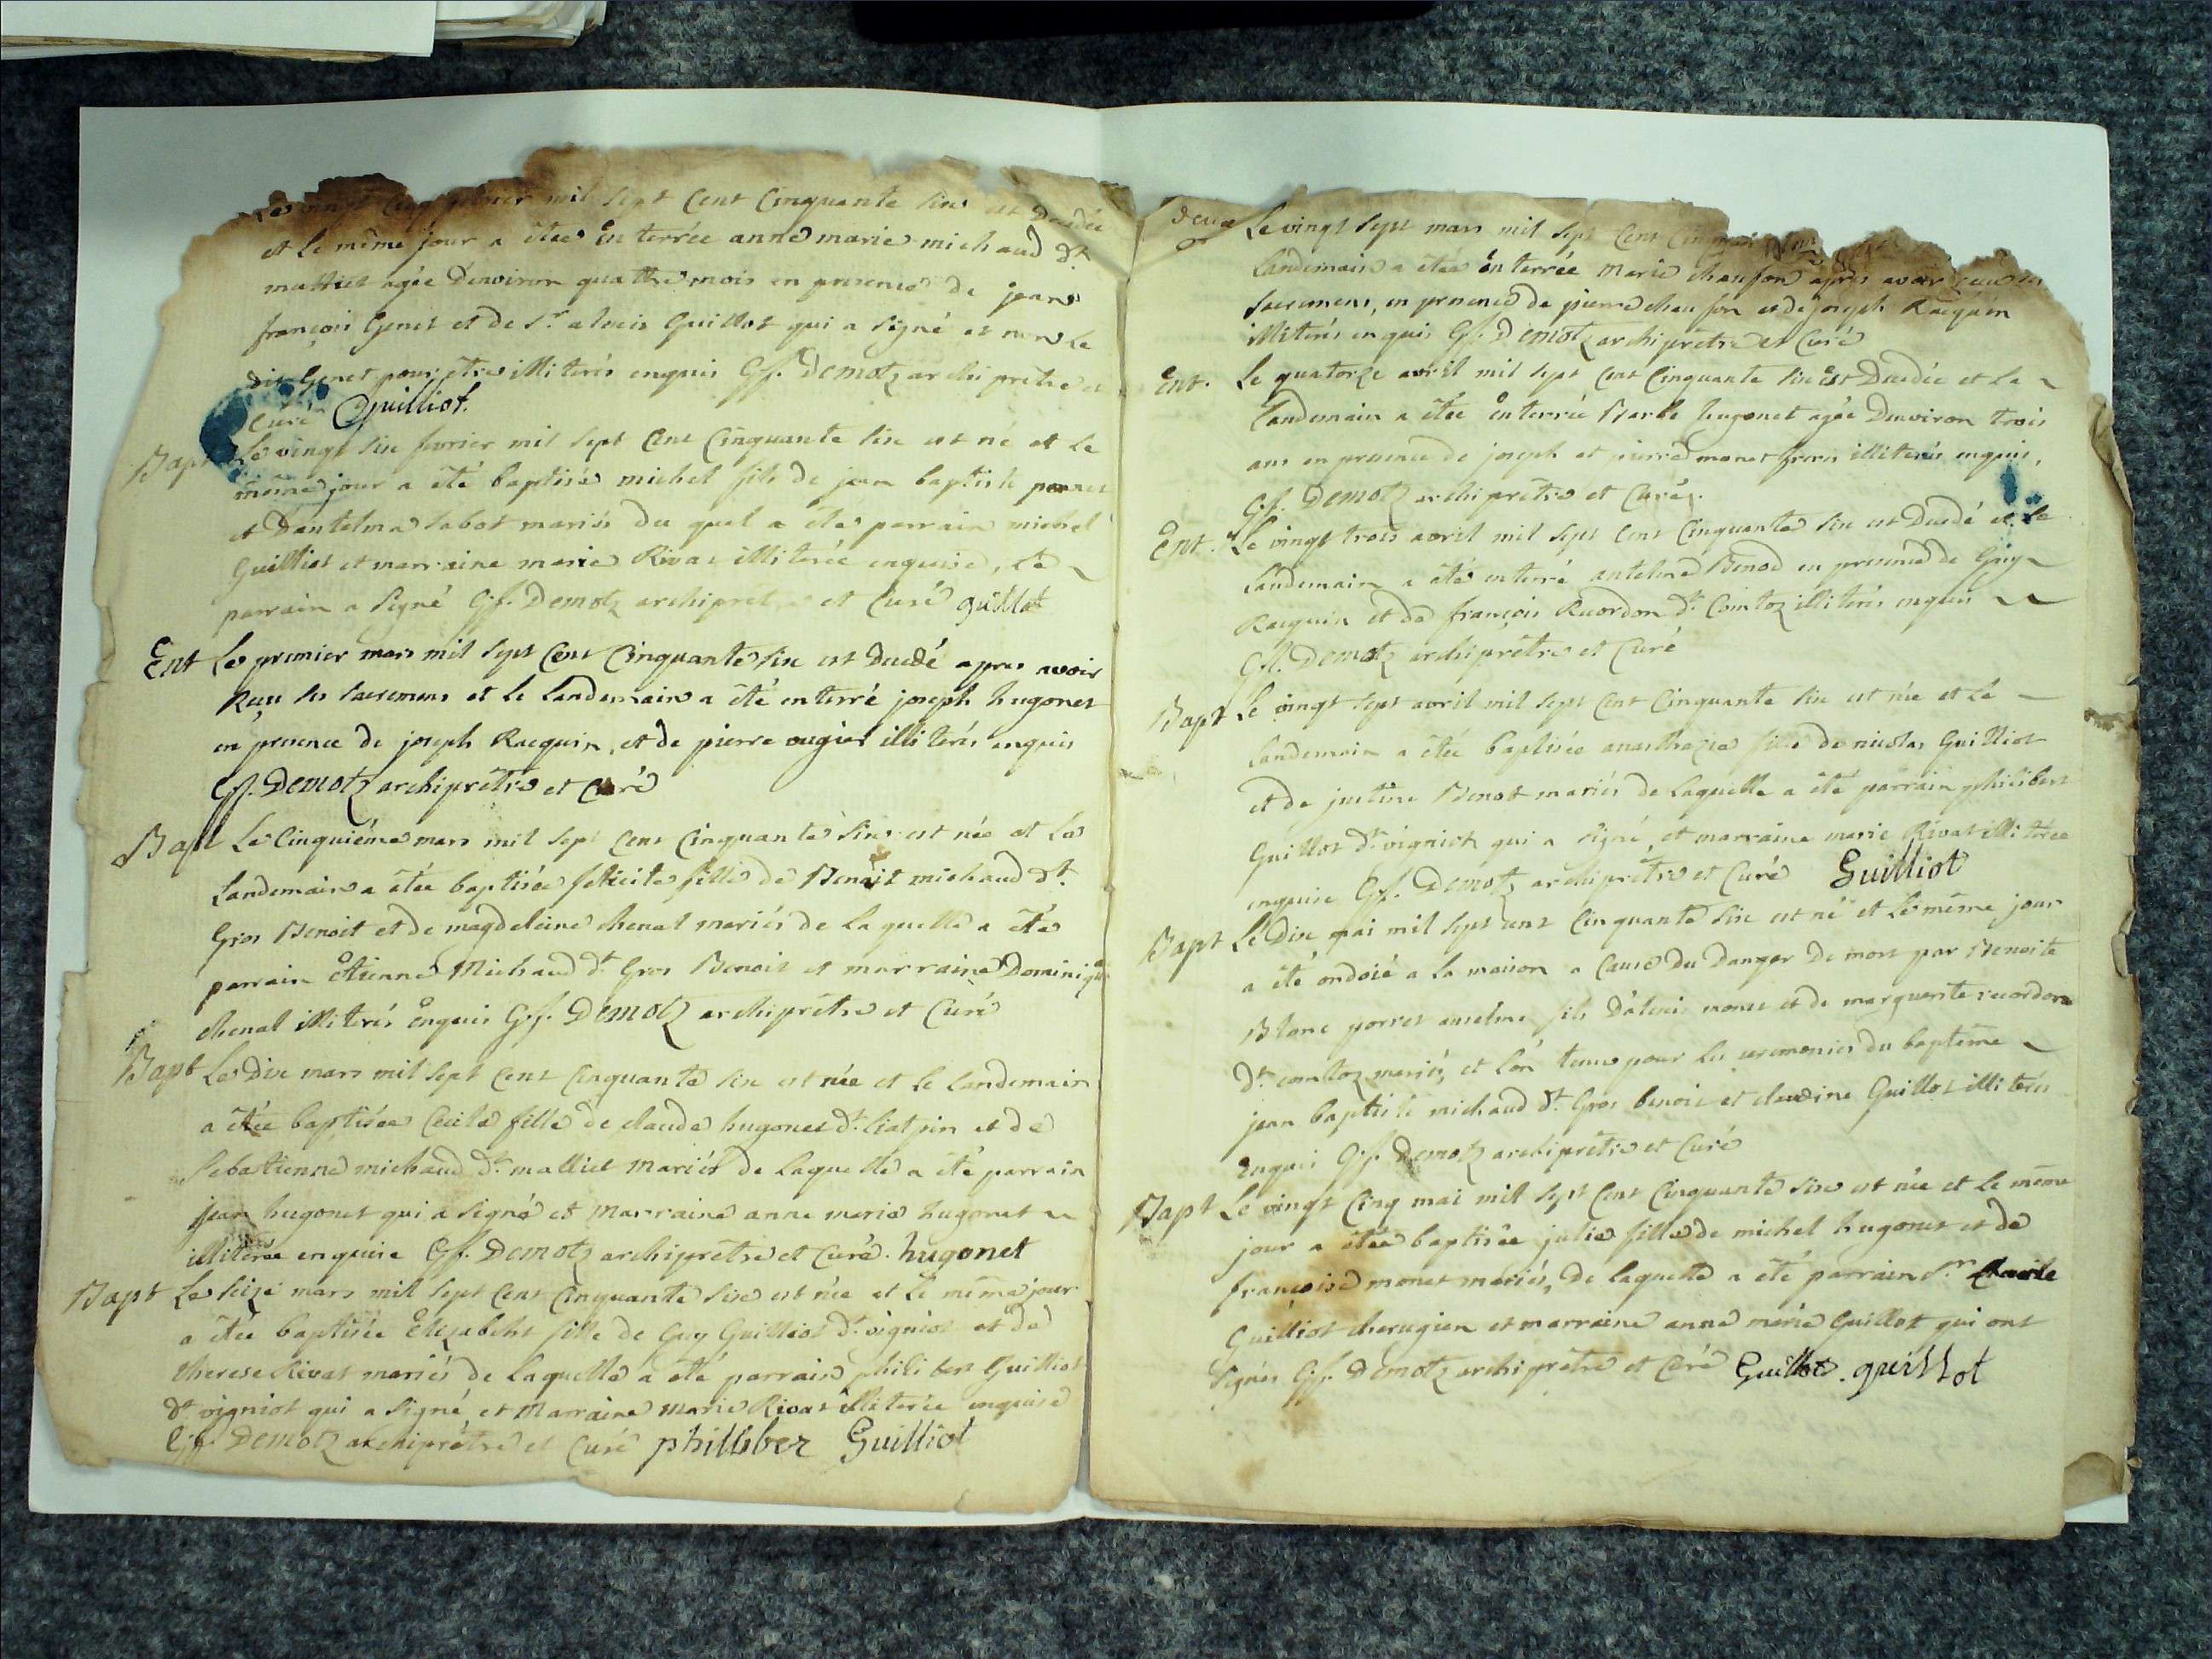 Le vingt cinq fevrier mil sept Cent Cinquante six est Decedée
et Le même jour a étée En terrée anne marie michaud dt
malliet agée D'environ quattre mois en presence de jean
françois Genet et de Sr alexis Guilliot qui a signé et non Le
dit Genet pour être illiterés enquis Gf. Demotz archiprêtre et
Curé Guilliot.
Bapt Le vingt six fevrier mil sept Cent Cinquante six est né et Le
même jour a été baptisé michel fils de jean baptiste
et Dantelma Sabot mariés du quel a étés parrain michel
Guilliot et marraine marie Rivat illiterée enquise, Le
parrain a signé Gf. Demotz archipretre et Curé guillot
Ent Le premier mars mil sept Cent Cinquante six est decedé apres avoir
Reçu les sacremens et le landemain a été enterré joseph hugonet
en presence de joseph Racquin, et de pierre ougier illiterés enquis
Gf. Demotz archiprêtre et Curé
Bapt Le Cinquiéme mars mil sept Cent Cinquante six est née et Le
landemain a étée baptisée felicite fille de Benoit michaud dt
Gros Benoit et de magdeleine chenal mariés de la quelle a été
parrain Etienne Michaud dt Gros Benoit et marraine Dominique
chenal illiterés Enquis Gf. Demotz archiprêtre et Curé
Bapt Le Dix mars mil sept Cent Cinquante six est née et le landemain
a étée baptisée Cecile fille de claude hugonet dt Liatpin et de
Sebatienne michaud dt malliet mariés de Laquelle a été parrain
jean hugonet qui a signé et marraine anne marie hugonet
illiterée enquise Gf. Demotz archiprêtre et Curé. hugonet
Bapt Le seize mars mil sept Cent Cinquante six est née et Le même jour
a étée baptisée Elizabeht fille de Guy Guilliot dt vigniot et de
therese Rivat mariés de Laquelle a été parrain philibert Guilliot
dt vigniot qui a signé, et marraine marie Rivat illiterée enquise
Gf. Demotz archiprêtre et Curé phillsber Guilliot
deux
Le vingt sept mars mil sept Cent
landemain a étée En terrée marie chaufon après avoir reçu les
sacremens, en presence de pierre chaufon et de joseph Racquin
illiterés enquis Gf. Demotz archiprêtre et Curé
Ent. Le quatorze avril mil sept Cent Cinquante six Est Decedée et Le
landemain a étée Enterrée Barbe hugonet agée D'environ trois
ans en presence de joseph et pierre monet freres illiterés enquis,
Gf. Demotz archiprêtre et Curé.
Ent. Le vingt trois avril mil sept Cent Cinquante six est Decedé et Le
landemain a été enterré antelme Benod en presence de Guy
Racquin et de françois Ruordon dt Comtoz illiterés enquis
Gf. Demotz archiprêtre et Curé
Bapt Le vingt sept avril mil sept Cent Cinquante six est née et Le
landemain a étée baptisée anasthazie fille de nicolas Guilliot
et de justine Benot mariés de Laquelle a été parrain philibert
Guillot dt vigniot qui a signé, et marraine marie Rivat illiterée
enquise Gf. Demotz archiprêtre et Curé Guilliot
Bapt Le Dix mai mil sept cent Cinquante six est né et Le même jour
a été ondoié a la maison a Cause Du Danger De mort par Benoite
Blanc porret anselme fils D'alexis monet et de marguerite ruordon
dt comtoz mariés, et l'on tenu pour les ceremonies du baptême
jean baptiste michaud dt Gros benoit et claudine Guillot illiterés
Enquis Gf. Demotz archiprêtre et Curé
Bapt Le vingt Cinq mai mil sept Cent Cinquante six est née et Le même
jour a étée baptisée julie fille de michel hugonet et de
françoise monet mariés, de laquelle a été parrain Sr
Guilliot cherugien et marraine anne marie Guillot qui ont
signés Gf. Demotz archiprêtre et Curé Guillot. guillot